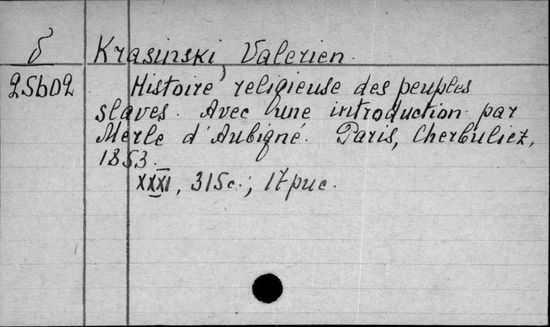 δ Krasinski, Valerien.
25602 Histoire religieuse des peuples
slaves. Avec une introduction par
Merle d'Aubigné. Paris, Cherbuliez,
1853.
XXXI, 315c.; 17 рис.